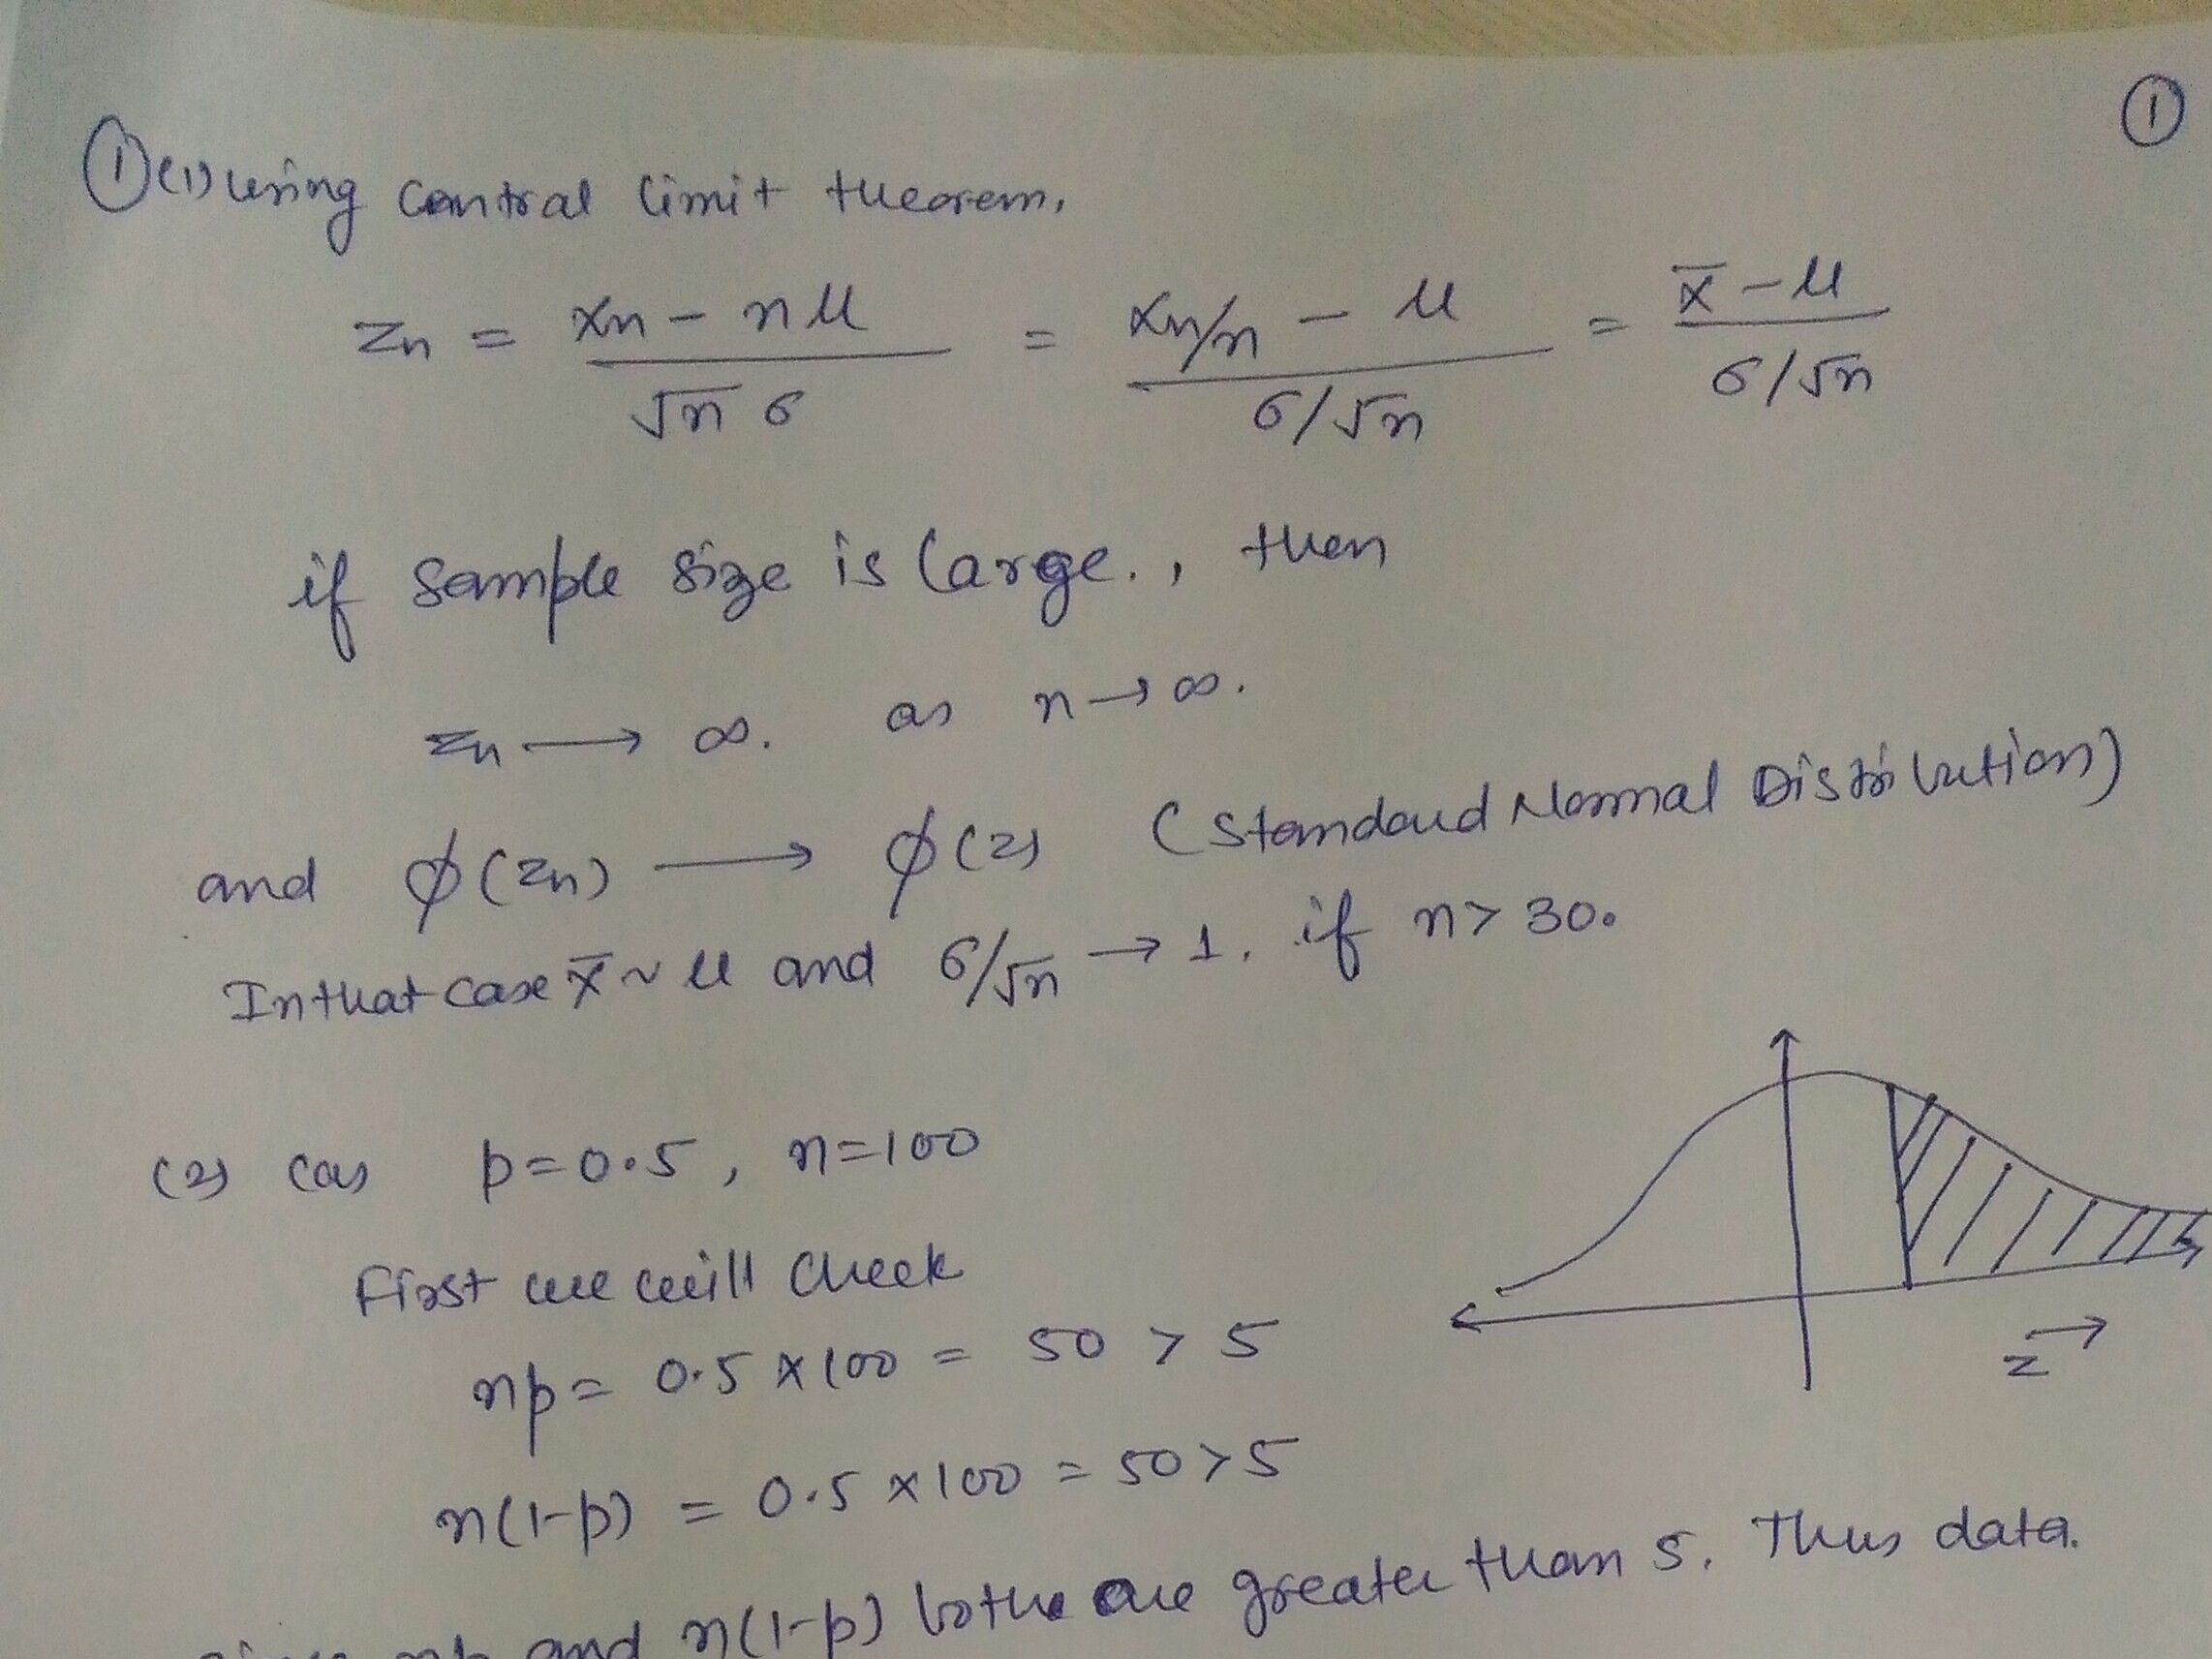 ①
①(1) using Central limit theorem,
zn = xn - nμ / √n σ = xn/n - μ / σ/√n = x̄ - μ / σ/√n
if sample size is large., then
zn → ∞. as n → ∞.
and ϕ(zn) → ϕ(z) (Standard Normal Distribution)
In that case x̄ ~ μ and σ/√n → 1. if n > 30.
(2) Cas p = 0.5, n = 100
First we will Check
np = 0.5 × 100 = 50 > 5
z →
n(1-p) = 0.5 × 100 = 50 > 5
np and n(1-p) bothe are greater than 5. Thus data.